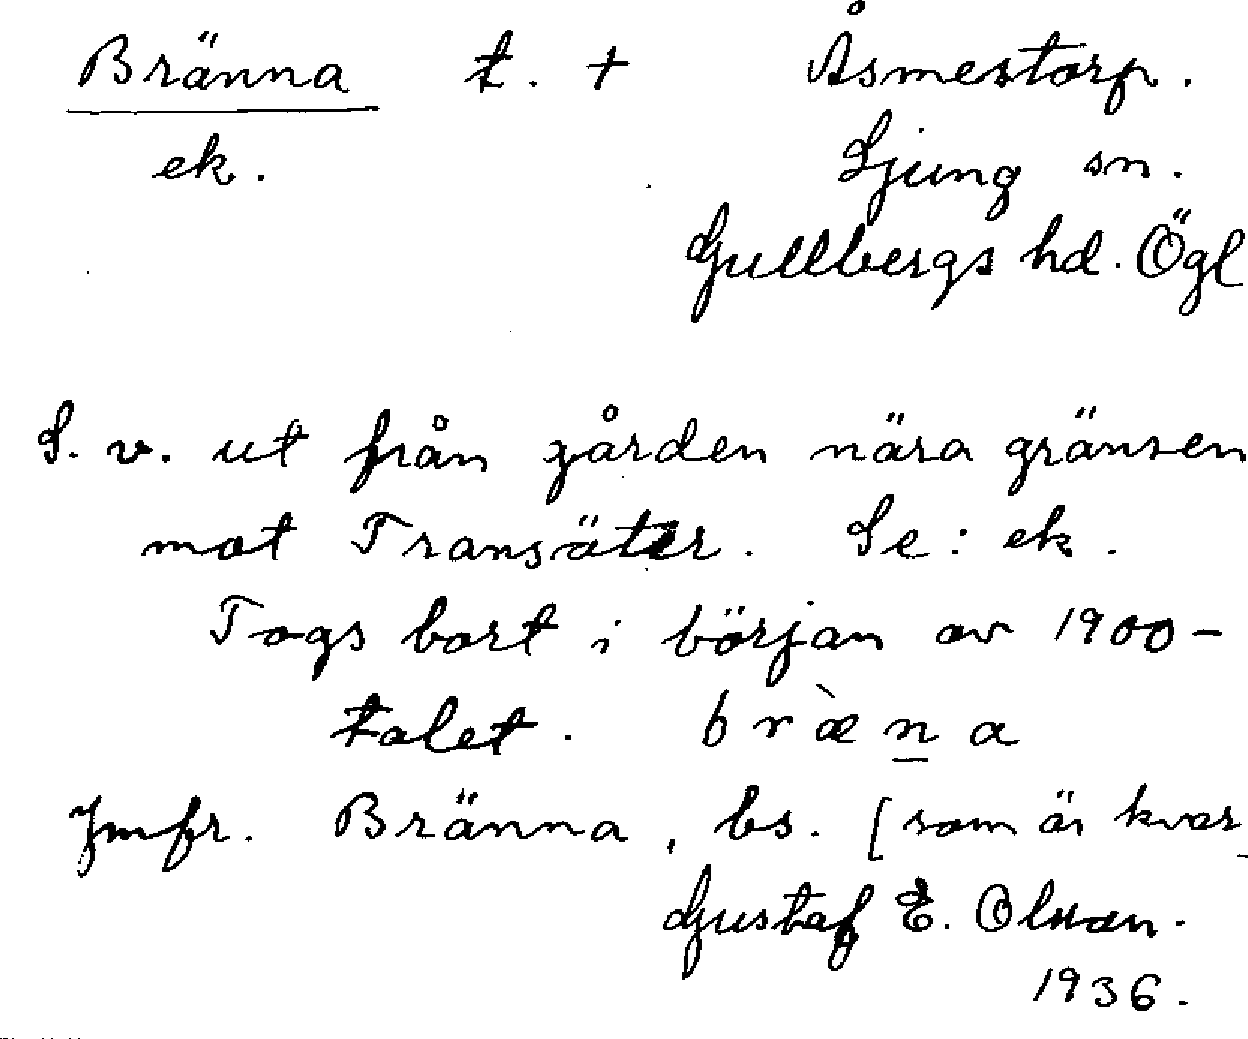 Bränna t. + Åsmestorp.
ek. Ljung sn.
Gullbergs hd. Ögl
S. v. ut från gården nära gränsen
mot Transäter. Se: ek.
Togs bort i början av 1900-
talet. bræ̀n̲a
Jmfr. Bränna, bs. [som är kvar
Gustaf E. Olsson.
1936.